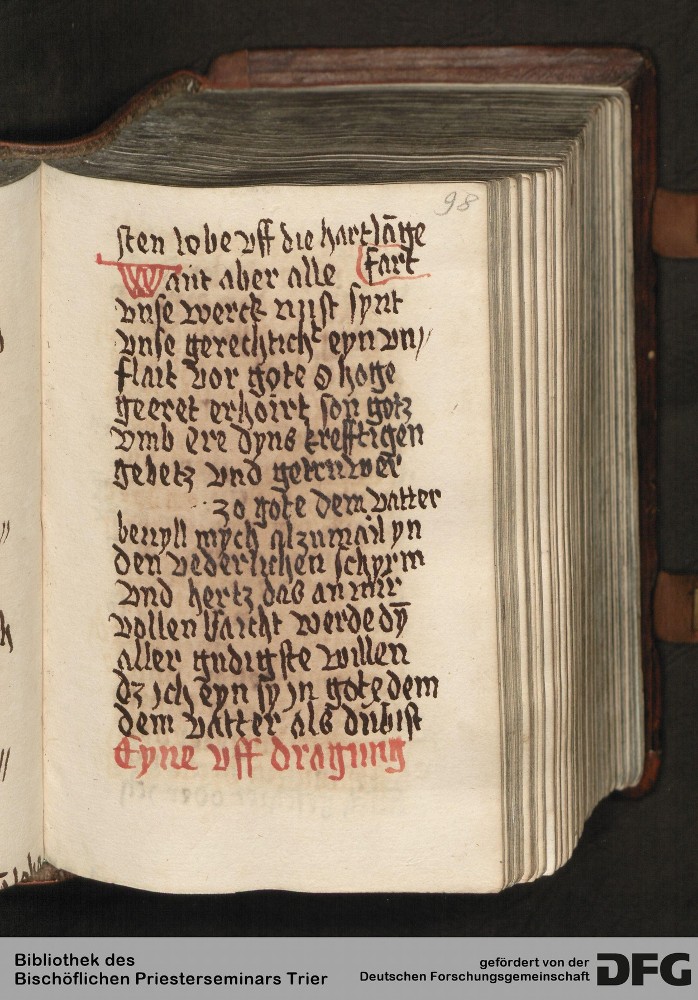 98
sten lobe vff die hartlãge
Want aber alle fart
vnse werck nijst synt
vnse gerechtich^t eyn vn/
flait vor gote O hoge
geeret erhoirt son gotz
vmb ere dyns krefftigen
gebetz vnd getruwer
zo gote dem vatter
beuyll mych alzumail yn
den vederlichen schyrm
vnd hertz das an mir
vollen bracht werde dȳ
aller gndigste willen
dz ich eyn sy jn gote dem
dem vatter als du bist
Eyne vff dragung
Bibliothek des
Bischöflichen Priesterseminars Trier
gefördert von der
Deutschen Forschungsgemeinschaft
DFG